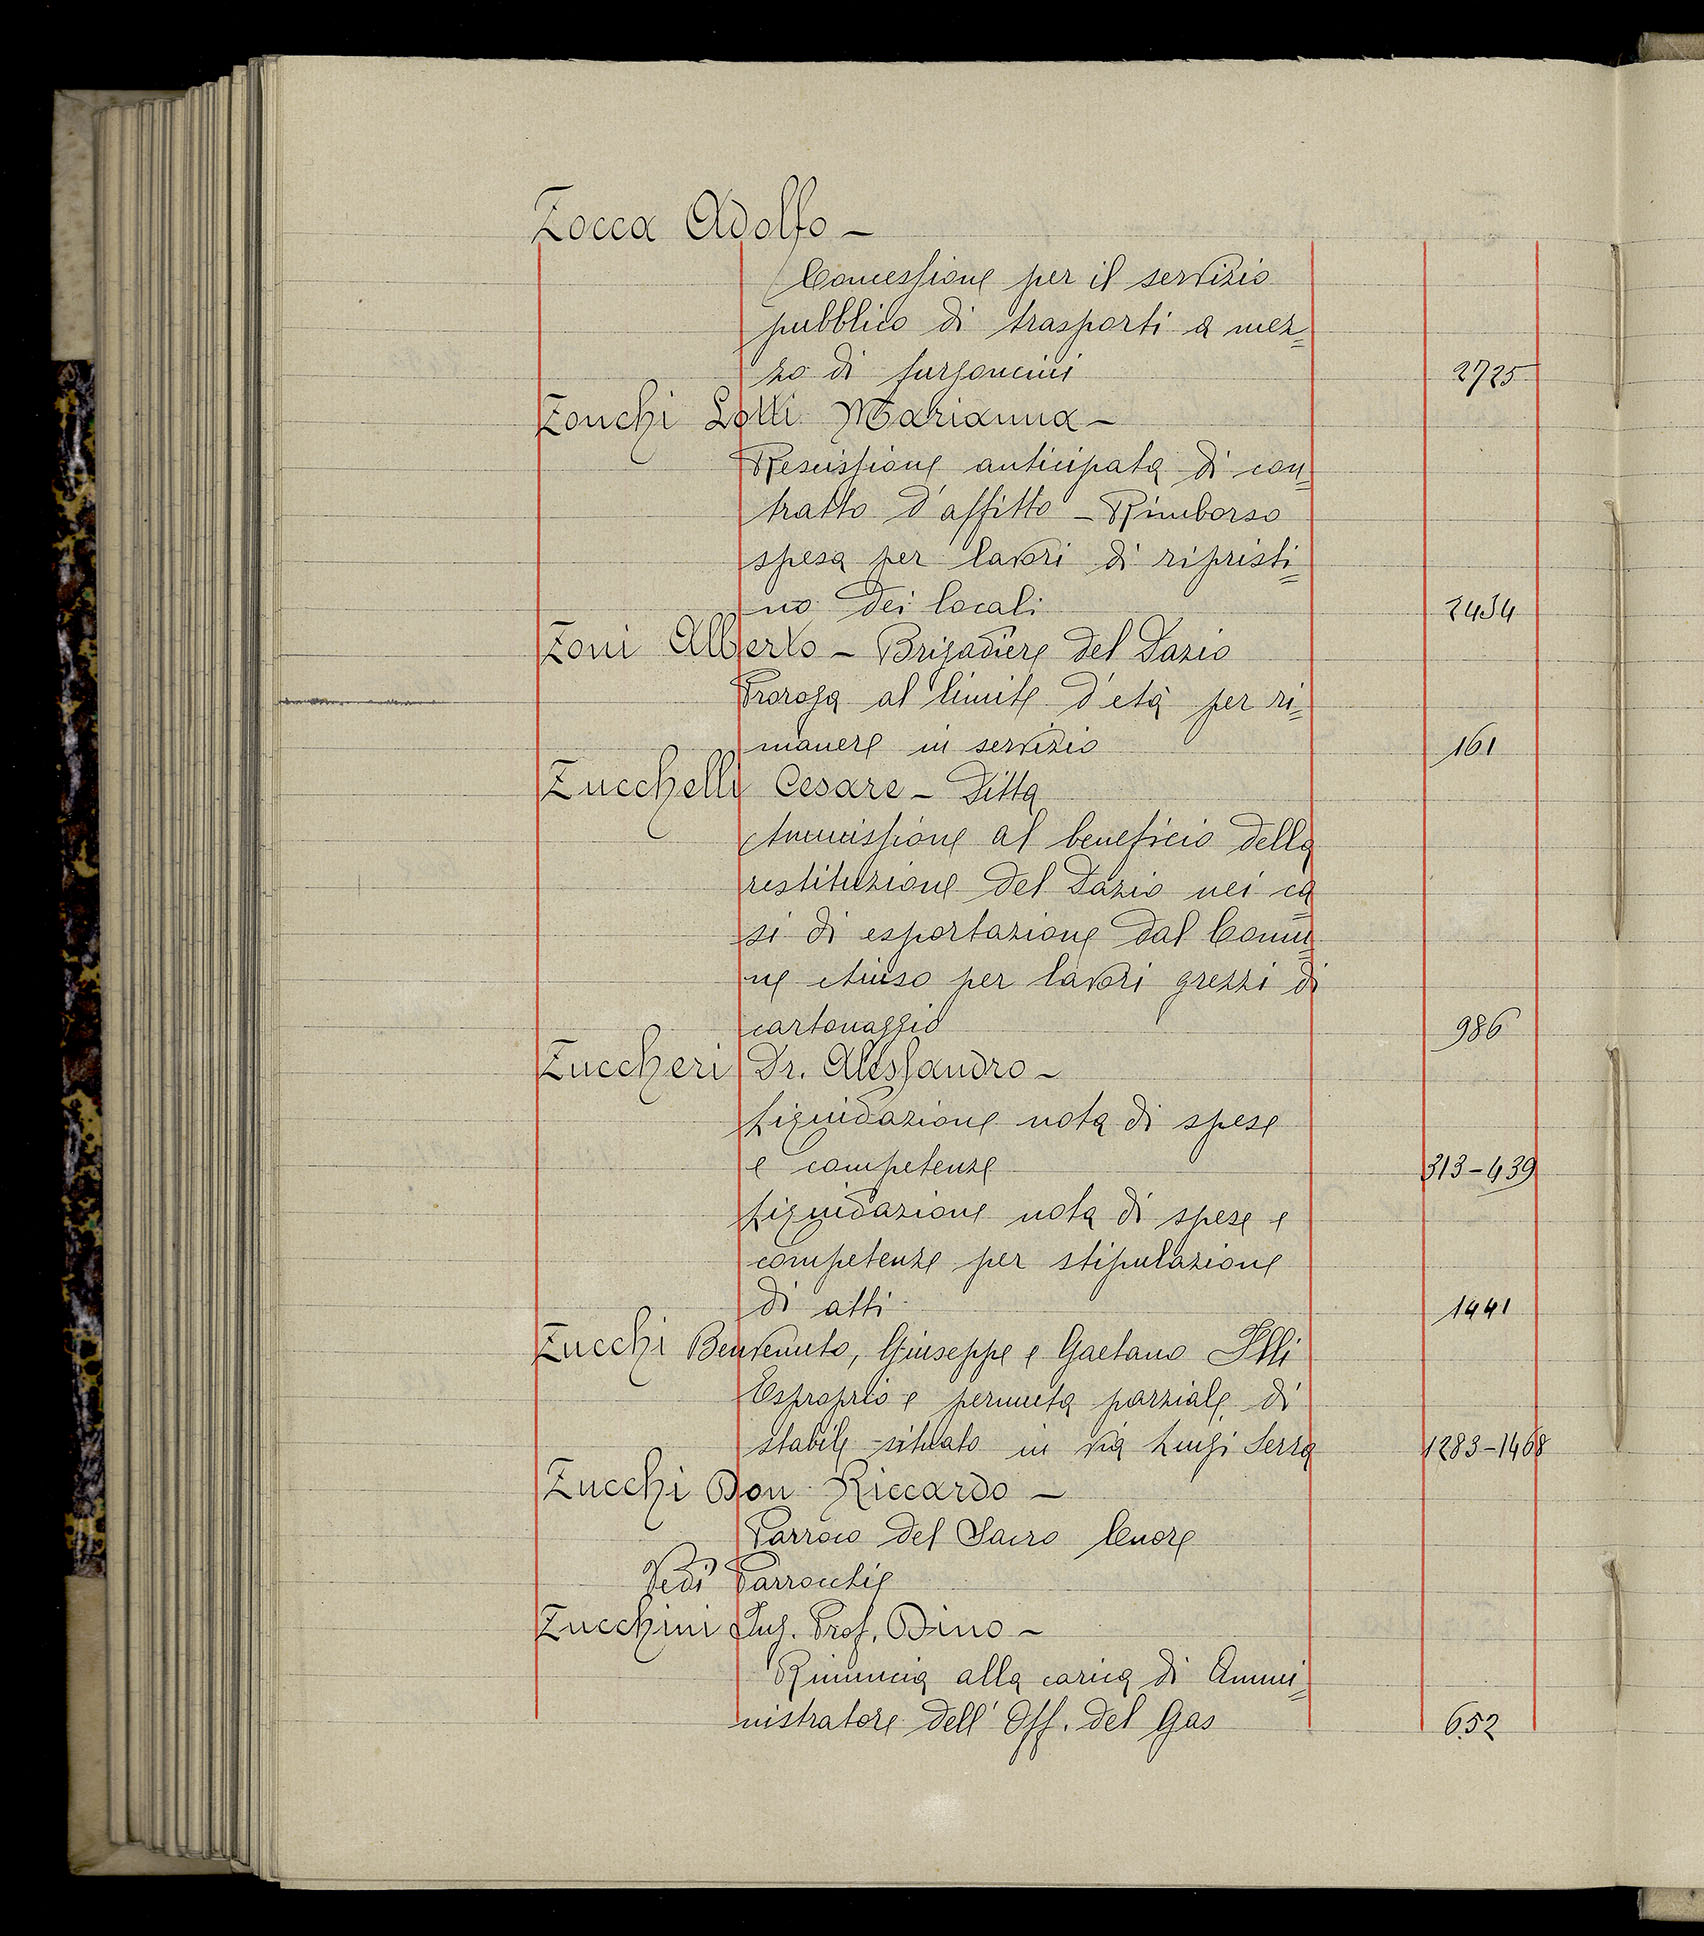 Zocca Adolfo –
Concessione per il servizio
pubblico di trasporti a mez=
zo di furgoncini 2725
Zonchi Lolli Marianna –
Rescissione anticipata di con=
tratto d'affitto – Rimborso
spesa per lavori di ripristi=
no dei locali 2434
Zoni Alberto – Brigadiere del Dazio
Proroga al limite d'età per ri=
manere in servizio 161
Zucchelli Cesare – Ditta
Ammissione al beneficio della
restituzione del Dazio nei ca=
si di esportazione dal Comu=
ne chiuso per lavori grezzi di
cartonaggio 986
Zuccheri Dr. Alessandro –
Liquidazione nota di spese
e competenze 313–439
Liquidazione nota di spese e
competenze per stipulazione
di atti 1441
Zucchi Benvenuto, Giuseppe e Gaetano Flli
Esproprio e permuta parziale di
stabile situato in via Luigi Serra 1283–1468
Zucchi Don Riccardo –
Parroco del Sacro Cuore
Vedi Parrocchie
Zucchini Ing. Prof. Dino –
Rinuncia alla carica di Ammi=
nistratore dell'Off. del Gas 652